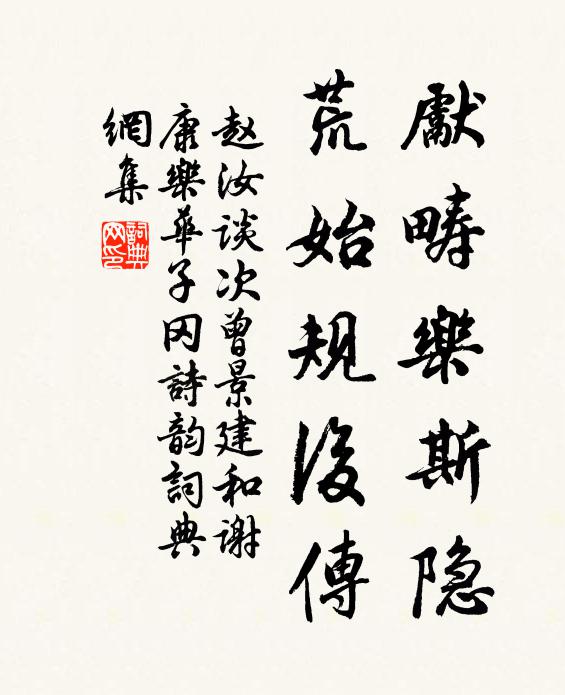 獻畴樂斯隐
荒始规後傳
赵汝谈次曾景建和谢
康樂華子冈詩韵詞典
網集
詞典
网印